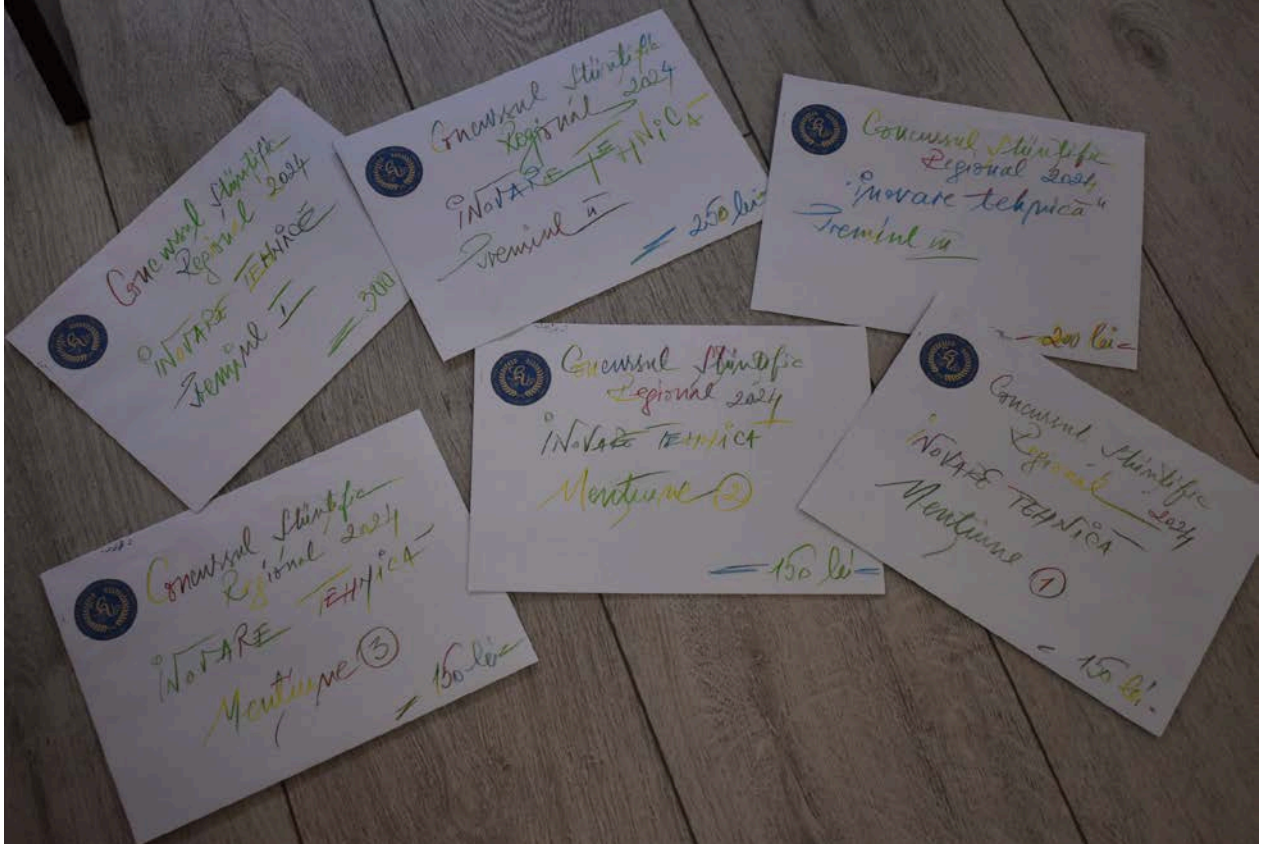 Concursul Științific
Regional 2024
INOVARE TEHNICĂ
Premiul I
= 300
Concursul Științific
Regional 2024
INOVARE TEHNICĂ
Premiul II
= 250 lei =
Concursul Științific
Regional 2024
"Inovare tehnică"
Premiul III
= 200 lei =
Concursul Științific
Regional 2024
INOVARE TEHNICĂ
Mențiune 3
= 150 lei =
Concursul Științific
Regional 2024
INOVARE TEHNICĂ
Mențiune 2
= 150 lei =
Concursul Științific
Regional 2024
INOVARE TEHNICĂ
Mențiune 1
= 150 lei =